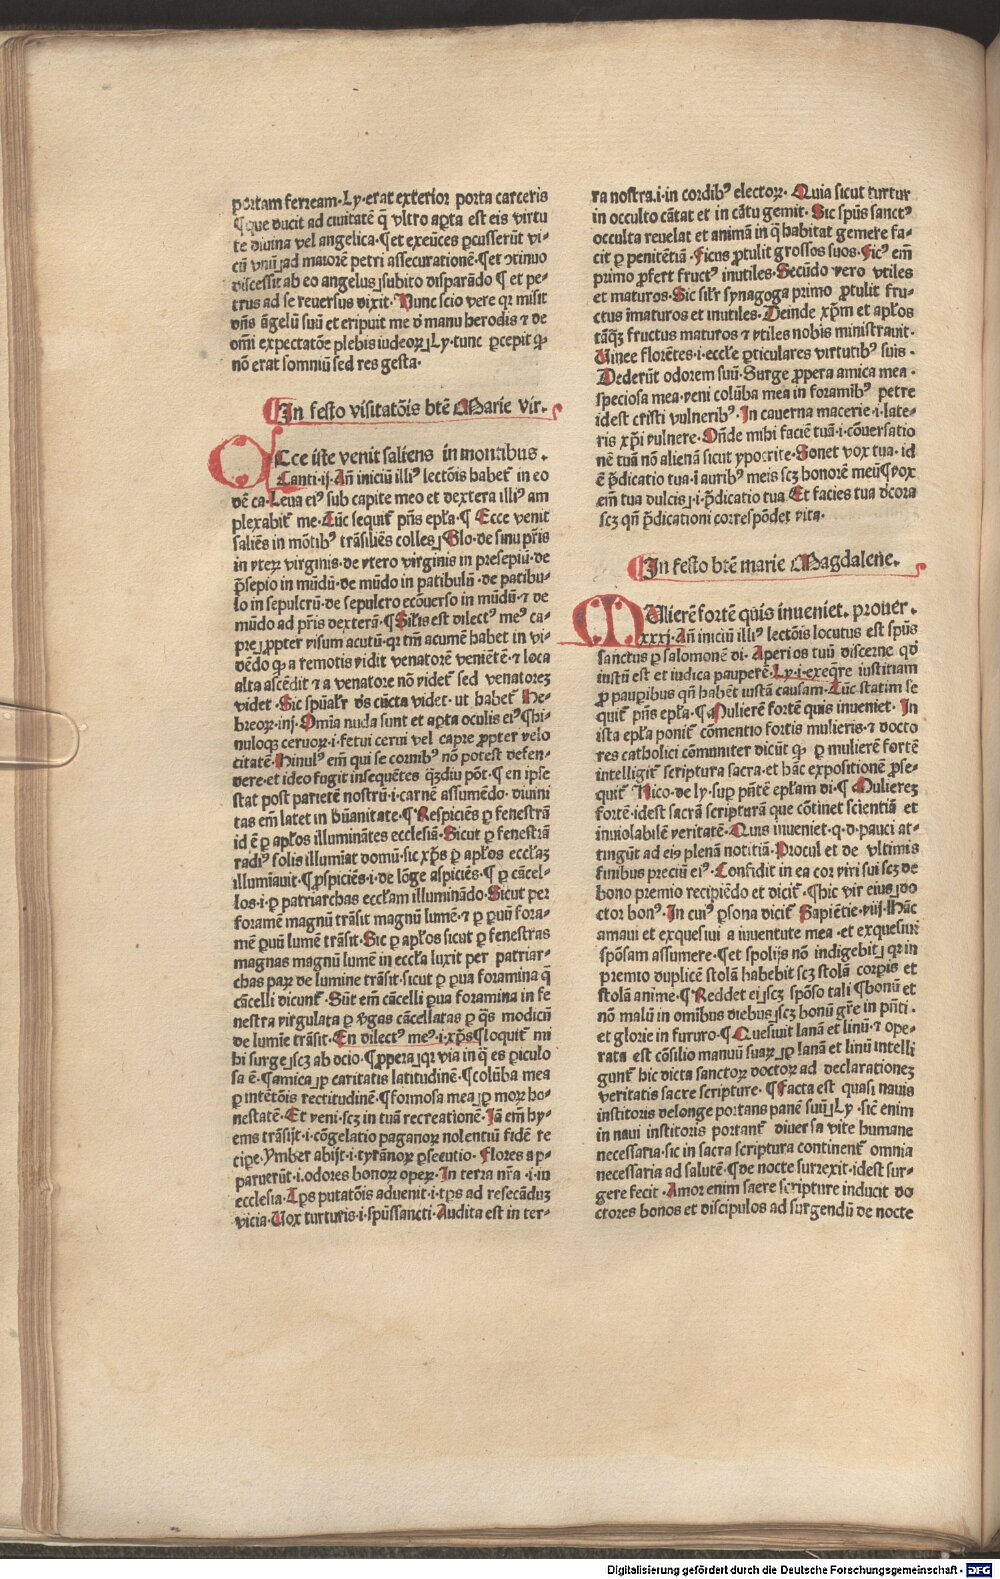 portam ferream. Ly. erat exterior porta carceris
¶ que ducit ad ciuitatē q̄ vltro aꝑta est eis virtu
te diuina vel angelica. ¶ et exeūtes ꝑcusserūt vi-
cū vnū ad maiorē petri assecurationē. ¶ et ↄtinuo
discessit ab eo angelus subito disparādo ¶ et pe-
trus ad se reuersus dixit. Nunc scio vere qꝛ misit
dn̄s āgelū suū et eripuit me d̄ manu herodis ⁊ de
om̄i expectatōe plebis iudeoꝝ Ly. tunc ꝑcepit ꝙ
nō erat somniū sed res gesta.
¶ In festo visitatōis btē Marie vir.
Ecce iste venit saliens in montibus.
Canti. ij. An̄ iniciū illiꝰ lectōis habet̄ in eo
dē ca. Leua eiꝰ sub capite meo et dextera illiꝰ am
plexabit̄ me. Tūc sequit̄ pn̄s epl̄a. ¶ Ecce venit
saliēs in mōtibꝰ trāsiliēs colles Glo. de sinu pr̄is
in vteꝝ virginis. de vtero virginis in presepiū. de
p̄sepio in mūdū. de mūdo in patibulū. de patibu-
lo in sepulcrū. de sepulcro ecōuerso in mūdū. ⁊ de
mūdo ad pr̄is dexterā. ¶ Sil̄is est dilectꝰ meꝰ ca-
pre ꝓpter visum acutū. qꝛ tm̄ acumē habet in vi-
dēdo ꝙ a remotis vidit venatorē veniētē. ⁊ loca
alta ascēdit ⁊ a venatore nō videt̄ sed venatoreꝫ
videt. Sic spūalr̄ d̄s cūcta videt. vt habet̄ He-
breoꝝ. iiij. Om̄ia nuda sunt et aꝑta oculis eiꝰ ¶ hi-
nuloqꝫ ceruoꝝ. i. fetui cerui vel capre ꝓpter velo
citatē. Hinulꝰ em̄ qui se cornibꝰ nō potest defen-
dere. et ideo fugit insequētes qꝫdiu pōt. ¶ en ipse
stat post parietē nostrū. i. carnē assumēdo. diuini
tas em̄ latet in hūanitate. ¶ Respiciēs ꝑ fenestrā
id ē ꝑ apl̄os illuminātes ecclesiā. Sicut ꝑ fenestrā
radiꝰ solis illumīat domū. sic xp̄s ꝑ apl̄os eccl̄aꝫ
illumīauit. ¶ ꝓspiciēs. i. de lōge aspiciēs. ¶ ꝑ cācel-
los. i. ꝑ patriarchas eccl̄am illuminādo. Sicut per
foramē magnū trāsit magnū lumē. ⁊ ꝑ ꝑuū fora-
mē ꝑuū lumē trāsit. Sic ꝑ apl̄os sicut ꝑ fenestras
magnas magnū lumē in eccl̄a luxit per patriar-
chas paꝝ de lumine trāsit. sicut ꝑ ꝑua foramina q̄
cācelli dicunt̄. Sūt em̄ cācelli ꝑua foramina in fe
nestra virgulata ꝑ v̄gas cācellatas ꝑ q̄s modicū
de lumīe trāsit. En dilectꝰ meꝰ. i. xp̄s ¶ loquit̄ mi
hi surge scꝫ ab ocio. ¶ ꝓpera qꝛ via in q̄ es ꝑiculo
sa ē. ¶ amica ꝑ caritatis latitudinē. ¶ colūba mea
ꝑ intētōis rectitudinē. ¶ formosa mea ꝑ moꝝ ho-
nestatē. Et veni. scꝫ in tuā recreationē. Jā em̄ hy-
ems trāsijt. i. cōgelatio paganoꝝ nolentiū fidē re
cipe. ymber abijt. i. tyrānoꝝ ꝑsecutio. Flores ap-
paruerūt. i. odores honoꝝ opeꝝ. In terra nr̄a. i. in
ecclesia. Tp̄s putatōis aduenit. i. tp̄s ad resecāduꝫ
vicia. Uox turturis. i. spūssancti. Audita est in ter-
ra nostra. i. in cordibꝰ electoꝝ. Quia sicut turtur
in occulto cātat et in cātu gemit. Sic spūs sanctꝰ
occulta reuelat et animā in q̄ habitat gemere fa-
cit ꝑ penitētiā. Ficus ꝓtulit grossos suos. Ficꝰ em̄
primo ꝓfert fructꝰ inutiles. Secūdo vero vtiles
et maturos. Sic silr̄ synagoga primo ꝓtulit fru-
ctus īmaturos et inutiles. Deinde xp̄m et apl̄os
tāqꝫ fructus maturos ⁊ vtiles nobis ministrauit.
Uinee florētes. i. eccl̄e ꝑticulares virtutibꝰ suis.
Dederūt odorem suū. Surge ꝓpera amica mea.
speciosa mea. veni colūba mea in foramibꝰ petre
idest cristi vulneribꝰ. In cauerna macerie. i. late-
ris xp̄i vulnere. On̄de mihi faciē tuā. i. cōuersatio
nē tuā nō alienā sicut ypocrite. Sonet vox tua. id
ē p̄dicatio tua. i auribꝰ meis scꝫ honorē meū ¶ vox
em̄ tua dulcis i. p̄dicatio tua. Et facies tua dcora
scꝫ qn̄ p̄dicationi correspōdet vita.
¶ In festo btē marie Magdalene.
Mulierē fortē quis inueniet. prouer.
xxxj. An̄ iniciū illiꝰ lectōis locutus est spūs
sanctus ꝑ salomonē di. Aperi os tuū discerne qd̄
iustū est et iudica pauperē. Ly. i. exeq̄re iustitiam
ꝓ pauꝑibus qn̄ habēt iustā causam. Tūc statim se
quit̄ pn̄s epl̄a. ¶ Mulierē fortē quis inueniet. In
ista epl̄a ponit̄ cōmentio fortis mulieris. ⁊ docto
res catholici cōmuniter dicūt ꝙ ꝑ mulierē fortē
intelligit̄ scriptura sacra. et hāc expositionē ꝓse-
quit̄ Nico. de ly. suꝑ pn̄tē epl̄am di. ¶ Mulierez
fortē. idest sacrā scripturā que cōtinet scientiā et
inuiolabilē veritatē. Quis inueniet. q. d. pauci at-
tingūt ad eiꝰ plenā notitiā. Procul et de vltimis
finibus preciū eiꝰ. Confidit in ea cor viri sui scꝫ de
bono premio recipiēdo et dicit̄. ¶ hic vir eius do
ctor bonꝰ. In cuiꝰ ꝑsona dicit̄ Sapiētie. viij. Hāc
amaui et exquesiui a iuuentute mea. et exquesiui
spōsam assumere. ¶ et spolijs nō indigebit qꝛ in
premio duplicē stolā habebit scꝫ stolā corꝑis et
stolā anime. ¶ Reddet ei scꝫ spōso tali ¶ bonū et
nō malū in omībus diebus scꝫ bonū gr̄e in pn̄ti.
et glorie in futuro. ¶ Quesiuit lanā et linū. ⁊ ope-
rata est cōsilio manuū suaꝝ ꝑ lanā et linū intelli
gunt̄ hic dicta sanctoꝝ doctoꝝ ad declarationeꝫ
veritatis sacre scripture. ¶ Facta est quasi nauis
institoris delonge portans panē suū Ly. sic̄ enim
in naui institoris portant̄ diuersa vite humane
necessaria. sic in sacra scriptura continent̄ omnia
necessaria ad salutē. ¶ de nocte surrexit. idest sur-
gere fecit. Amor enim sacre scripture inducit do
ctores bonos et discipulos ad surgendū de nocte
Digitalisierung gefördert durch die Deutsche Forschungsgemeinschaft - DFG